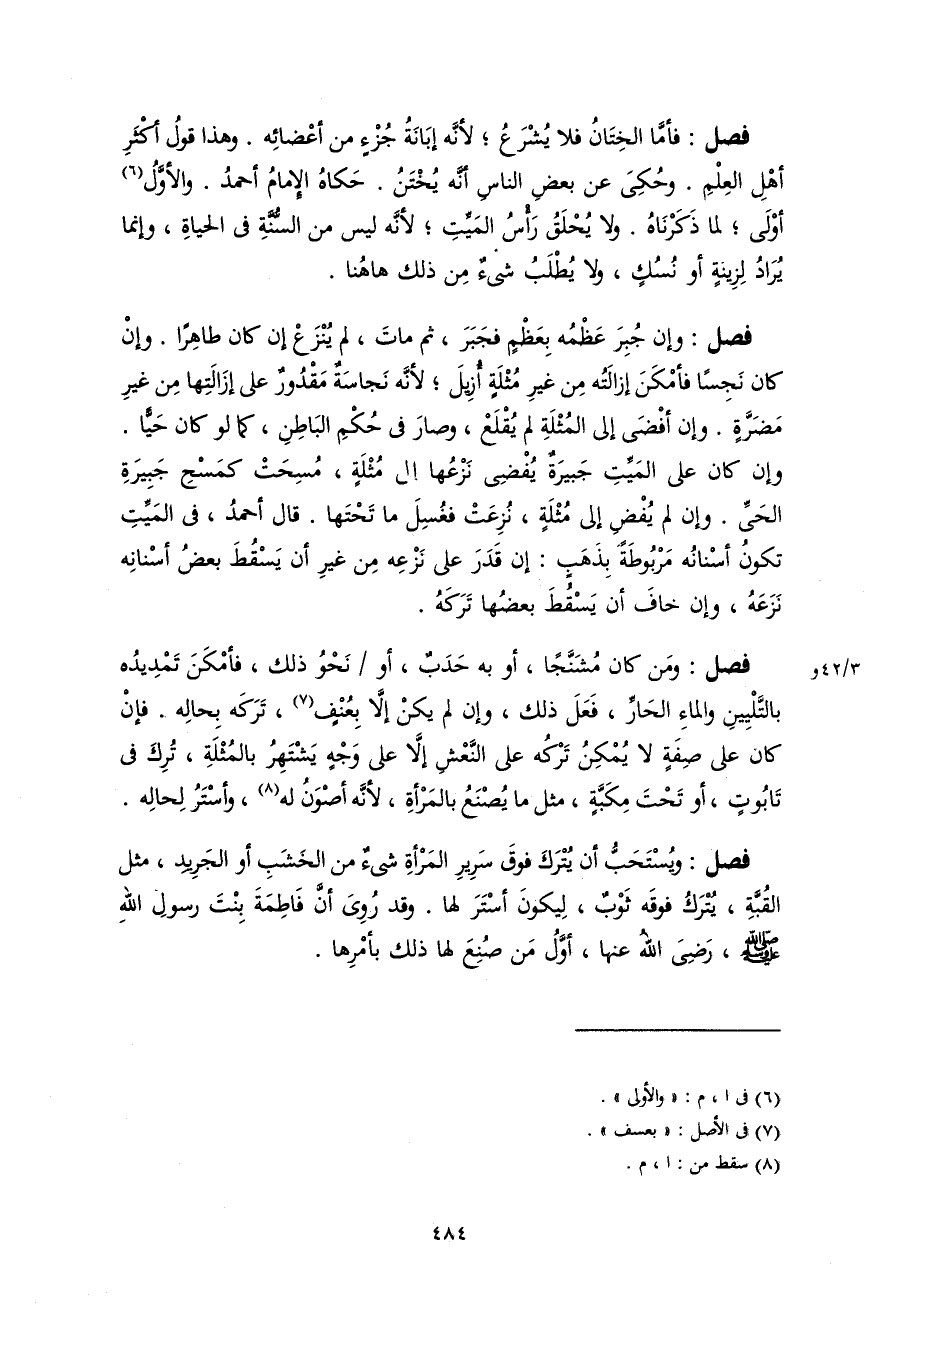 فصل : فأمَّا الخِتَانُ فلا يُشْرَعُ ؛ لأنَّه إبَانَةُ جُزْءٍ من أعْضائِه . وهذا قولُ أكْثَرِ
أهْلِ العِلْمِ . وحُكِىَ عن بعضِ الناسِ أنَّه يُخْتَنُ . حَكاهُ الإِمامُ أحمدُ . والأوَّلُ(٦)
أوْلَى ؛ لما ذَكَرْنَاهُ . ولا يُحْلَقُ رَأْسُ المَيِّتِ ؛ لأنَّه ليس من السُّنَّةِ فى الحياةِ ، وإنما
يُرَادُ لِزِينَةٍ أو نُسُكٍ ، ولا يُطْلَبُ شىءٌ مِن ذلك هاهُنا .
فصل : وإن جُبِرَ عَظْمُه بِعَظْمٍ فجَبَرَ ، ثم ماتَ ، لم يُنْزَعْ إن كان طاهِرًا . وإنْ
كان نَجِسًا فأمْكَنَ إزالَتُه مِن غيرِ مُثْلَةٍ أُزِيلَ ؛ لأنَّه نَجاسَةٌ مَقْدُورٌ على إزَالَتِها مِن غيرِ
مَضَرَّةٍ . وإن أفْضَى إلى المُثْلَةِ لم يُقْلَعْ ، وصارَ فى حُكْمِ البَاطِنِ ، كما لو كان حَيًّا .
وإن كان على المَيِّتِ جَبِيرَةٌ يُفْضِى نَزْعُها الى مُثْلَةٍ ، مُسِحَتْ كمَسْحِ جَبِيرَةِ
الحَىِّ . وإن لم يُفْضِ إلى مُثْلَةٍ ، نُزِعَتْ فغُسِلَ ما تَحْتَها . قال أحمدُ ، فى المَيِّتِ
تكونُ أسْنانُه مَرْبُوطَةً بِذَهَبٍ : إن قَدَرَ على نَزْعِه مِن غيرِ أن يَسْقُطَ بعضُ أسْنانِه
نَزَعَهُ ، وإن خافَ أن يَسْقُطَ بعضُها تَرَكَهُ .
فصل : ومَن كان مُشَنَّجًا ، أو به حَدَبٌ ، أو / نَحْوُ ذلك ، فأمْكَنَ تَمْدِيدُه
٤٢/٣و
بالتَّلْيِينِ والماءِ الحَارِّ ، فَعَلَ ذلك ، وإن لم يكنْ إلَّا بِعُنْفٍ(٧) ، تَرَكَه بِحالِه . فإنْ
كان على صِفَةٍ لا يُمْكِنُ تَرْكُه على النَّعْشِ إلَّا على وَجْهٍ يَشْتَهِرُ بالمُثْلَةِ ، تُرِكَ فى
تابُوتٍ ، أو تَحْتَ مِكَبَّةٍ ، مثل ما يُصْنَعُ بالمَرْأةِ ، لأنَّه أصْوَنُ له(٨) ، وأسْتَرُ لِحالِه .
فصل : ويُسْتَحَبُّ أن يُتْرَكَ فوقَ سَرِيرِ المَرْأةِ شىءٌ من الخَشَبِ أو الجَرِيدِ ، مثل
القُبَّةِ ، يُتْرَكُ فوقَه ثَوْبٌ ، لِيكونَ أسْتَرَ لها . وقد رُوِىَ أنَّ فَاطِمَةَ بِنْتَ رسولِ اللهِ
ﷺ ، رَضِىَ اللهُ عنها ، أوَّلُ مَن صُنِعَ لها ذلك بأمْرِها .
(٦) فى ا ، م : « والأولى » .
(٧) فى الأصل : « بعسف » .
(٨) سقط من : ا ، م .
٤٨٤